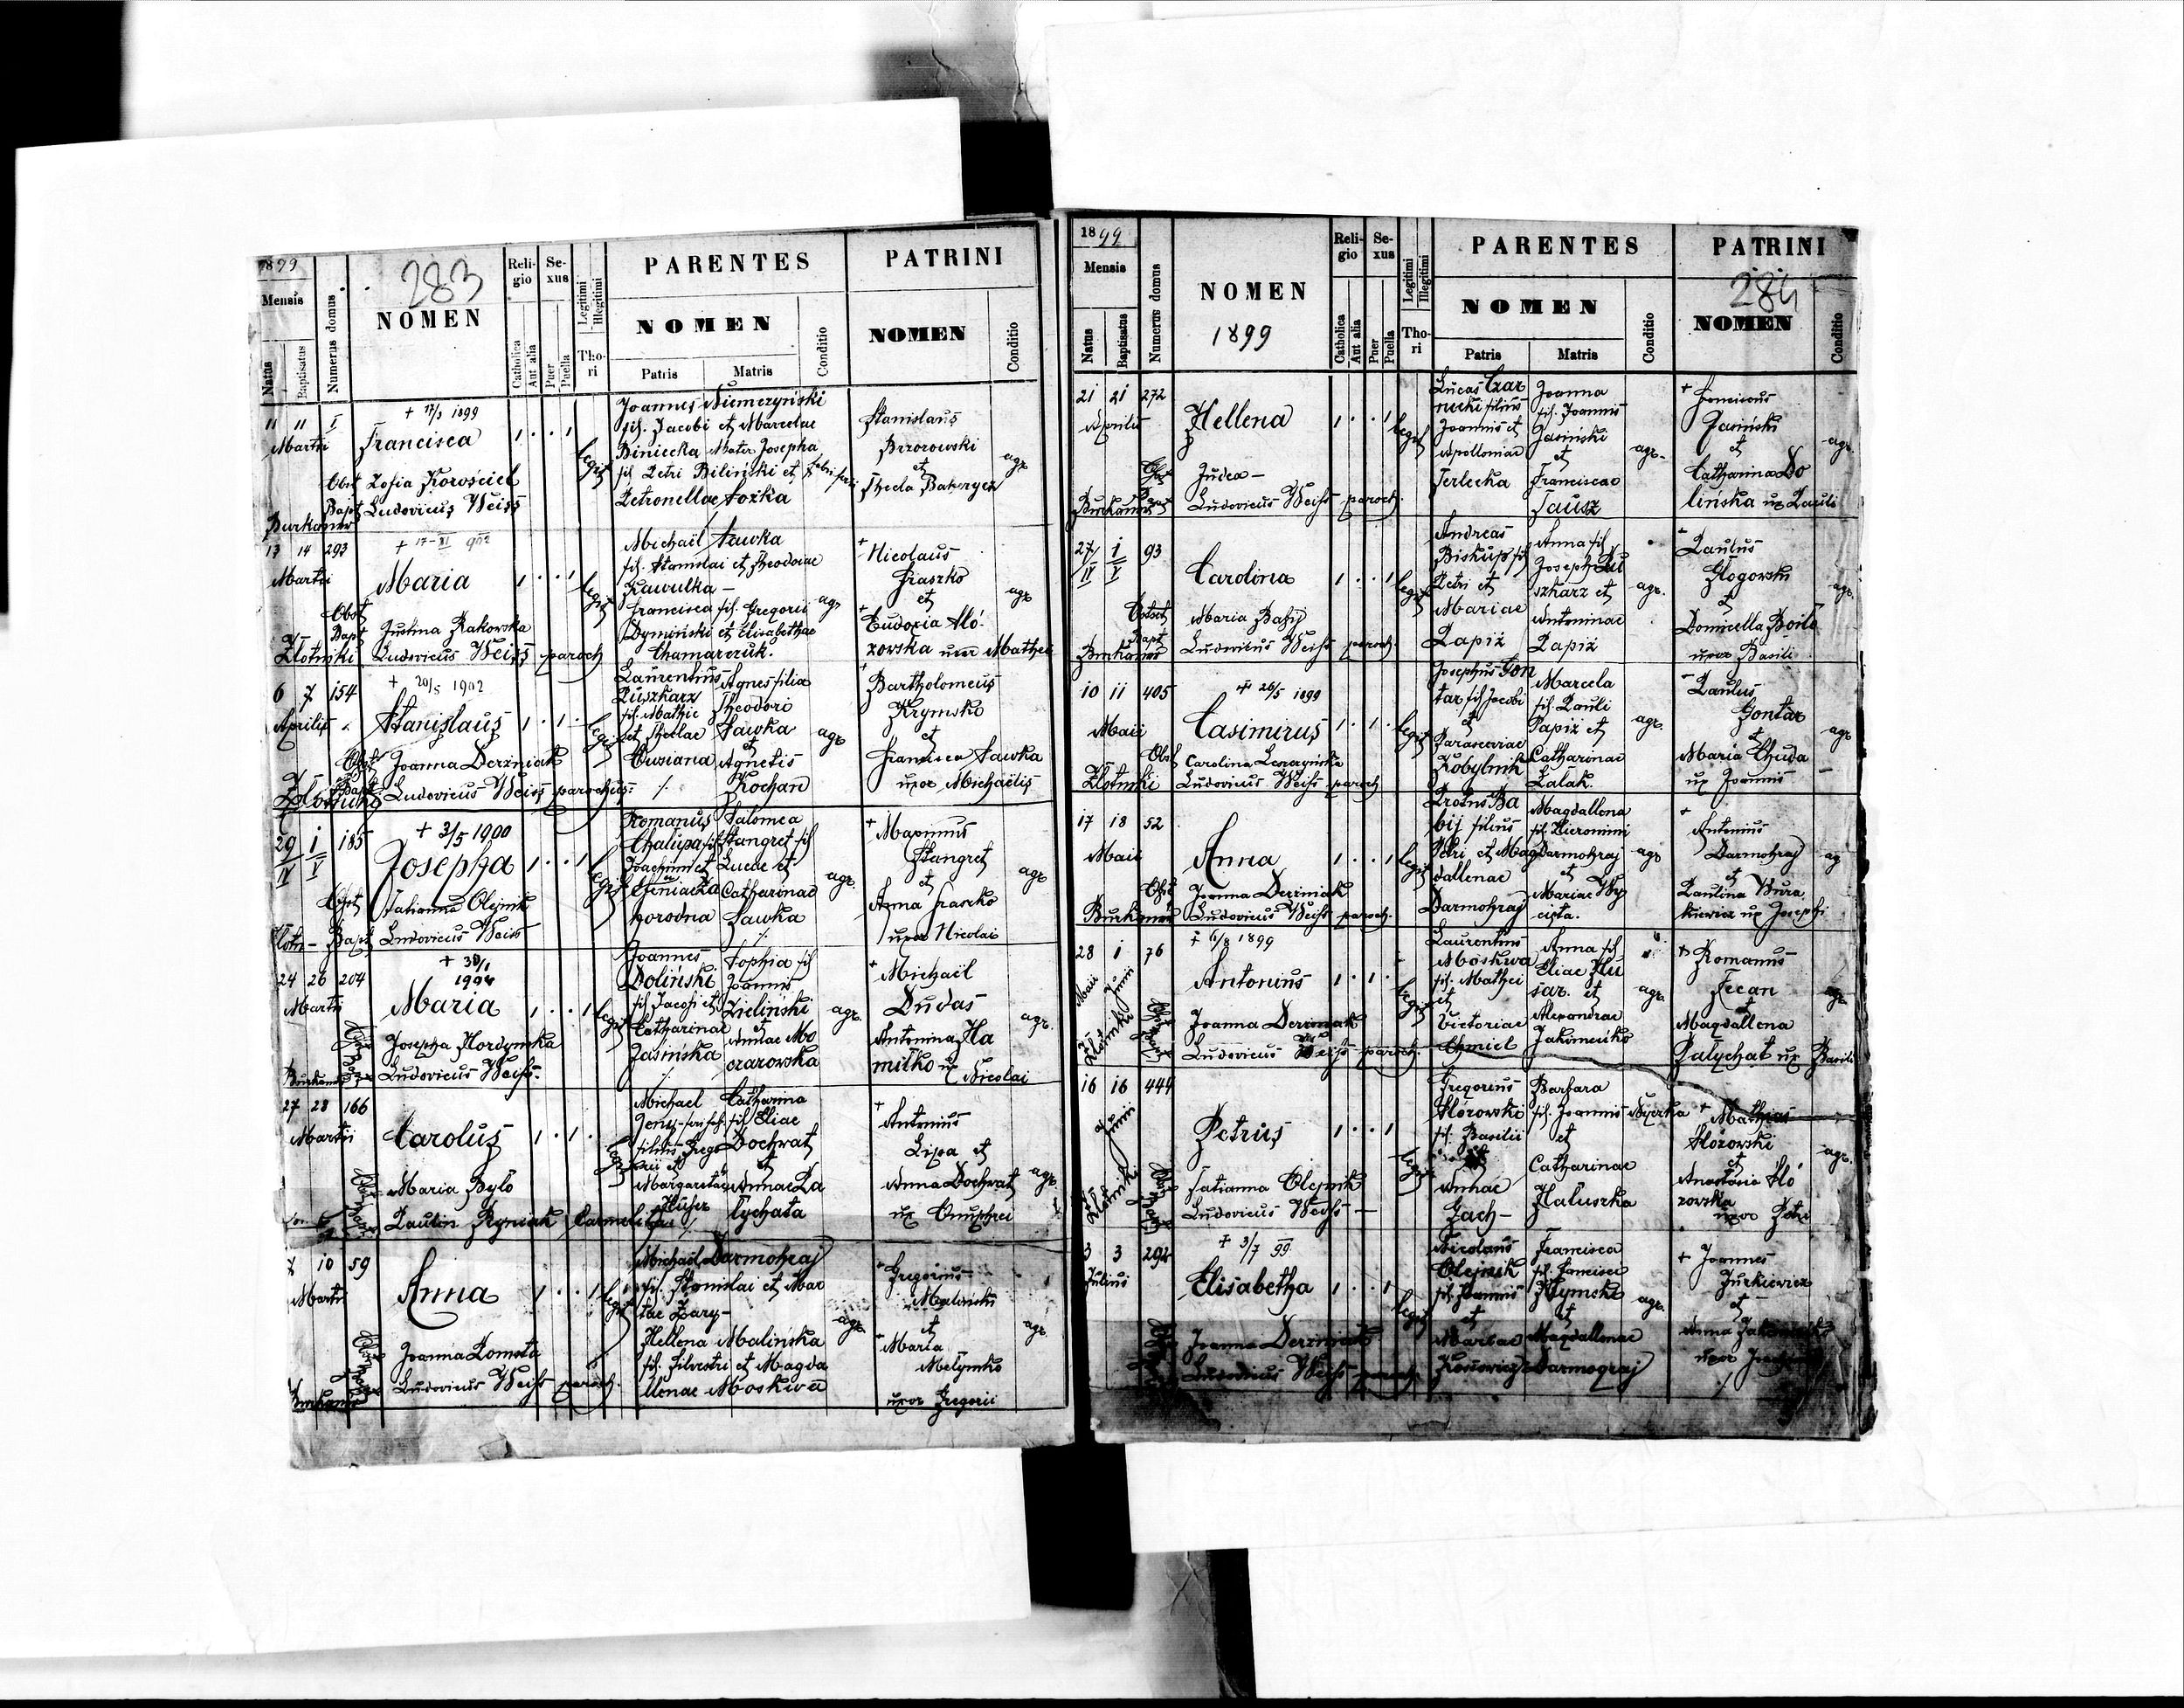 1899
283
Mensis
Natus
Baptisatus
Numerus domus
NOMEN
Religio
Catholica
Aut alia
Sexus
Puer
Puella
Legitimi
Illegitimi
Thori
PARENTES
NOMEN
Patris
Matris
Conditio
PATRINI
NOMEN
Conditio
11 11 I
Martii
+ 17/3 1899
Francisca
1 . . 1
legit
Obst Zofia Korościel
Bapt Ludovicus Weiss
Burkanow
Joannes Niemczyński
fil. Jacobi et Marcelae
Biniecka Mater Josepha
fil Petri Biliński et
Petronellae Łozka
Stanislaus
Brzozowski
et
Thecla
agr
13 14 293
Martii
+ 17-XI 902
Maria
1 . . 1
legit
Obst Justina Rakowska
Bapt Ludovicus Weiss paroch
Złotniki
Michaël Sawka
fil. Stanislai et Theodorae
Kawulka -
Francisca fil. Gregorii
Dymiński et Elisabethae
Chamarczuk.
agr
+ Nicolaus
Hraszko
et
+ Eudoxia Hló-
zowska uxor Mathei
agr
6 7 154
Aprilis
+ 20/5 1902
Stanislaus
1 . 1 .
legit
Obst Joanna Derzniak
Bapt. Ludovicus Weiss parochus.
Laurentius
Puszkarz
fil. Mathie
et Theclae
Agnes filia
Theodori
Sawka
et
Agnetis
Kochan
agr
Bartholomeus
Krymsko
et
Francisca Sawka
uxor Michaëlis
29/IV 1/V 185
+ 3/5 1900
Josepha
1 . . 1
legit
Obst Tatianna Olejnik
Bapt Ludovicus Weiss
Romanus
Chalupa fil
Joachimi et
horodna
Salomea
Stangret fil
Lucae et
Catharinae
Sawka
agr.
+ Maximus
Stangret
et
Anna Hraszko
uxor Nicolai
agr
24 26 204
Martii
+ 30/1
Maria
1 . . 1
legit
Josepha Hordynska
Ludovicus Weiss.
Joannes
Doliński
fil Jacobi et
Catharinae
Jasińska
Sophia fil
Joannis
Zieliński
et
Annae Mo
czarowska
agr.
+ Michaël
Dudas
Antonina Ha
miłko ux
Nicolai
agr.
27 28 166
Martii
Carolus
1 . 1 .
legit
Maria Bylo
Paulin Ryniak Carmelita
Michael
filius Grego
rii et
Margaretae
Catharina
fil Eliae
Dochwat
et
Annae Pa
lychata
+ Antonius
Lipa et
Anna Dochwat
ux Onuphrei
agr
10 59
Martii
Anna
1 . . 1
legit
Joanna Łomota
Ludovicus Weiss paroch.
Michaël Darmohraj
fil. Stanislai et Mar
tae Zary-
Hellena Malinska
fil. Silvestri et Magda
llenae Moskwa
agr
+ Gregorius
Malinski
et
+ Maria
Melymko
uxor Gregorii
agr
1899
Mensis
Natus
Baptisatus
Numerus domus
NOMEN
1899
Religio
Catholica
Aut alia
Sexus
Puer
Puella
Legitimi
Illegitimi
Thori
PARENTES
NOMEN
Patris
Matris
Conditio
PATRINI
284
NOMEN
Conditio
21 21 272
Aprilis
Hellena
1 . . 1
legit
Judea -
Ludovicus Weiss paroch.
Lucas Czar
necki filius
Joannis et
Apolloniae
Terlecka
Joanna
fil. Joannis
Jasiński
et
Franciscae
Tausz
agr.
+ Franciscus
Jasiński
et
Catharina Do
linska ux Basili
agr.
27/IV 1/V 93
Carolina
1 . . 1
legit
Maria Babij
Ludovicus Weiss paroch.
Burkanow
Andreas
Biskup fil
Petri et
Mariae
Papiż
Anna fil
Josephi Pu
szkarz et
Antoninae
Papiż
agr.
Paulus
Głogowski
et
Domicella Boilo
uxor Basili
agr.
10 11 405
Maii
+ 26/5 1899
Casimirus
1 . 1 .
legit
Obst Carolina
Ludovicus Weiss paroch
Złotniki
Josephus Gon
tar, fil Jacobi
et
Parasceviae
Kobylnik
Marcela
fil. Pauli
Papiż et
Catharinae
Zalak.
agr.
Paulus
Gontar
et
Maria Chuda
ux Joannis
agr
17 18 52
Maii
Anna
1 . . 1
legit
Obst Joanna Derzniak
Burkanow Ludovicus Weiss paroch.
Protus Ba
bij filius
Petri et Mag
dallenae
Darmohraj
Magdallena
fil. Hieronimi
Darmohraj
et
Mariae Wy
cista.
agr
+ Antonius
Darmohraj
et
Paulina Wura
kiewicz ux Josephi
ag
28 1 76
Maii Junii
+ 6/8 1899
Antonius
1 . 1 .
legit
Joanna Derzniak
Ludovicus Weiss paroch.
Złotniki
Laurentius
Moskwa
fil. Mathei
et
Victoriae
Chmiel
Anna fil
Eliae Hu
sar. et
Alexandrae
Jakimcisko
agr.
+ Romanus
Fecan
et
Magdallena
Palychat ux Basili
agr
16 16 449
Junii
Petrus
1 . . 1
legit
Tatianna Olejnik
Ludovicus Weiss -
Gregorius
Hlózowski
fil. Basilii
Annae
Zach-
Barbara
fil. Joannis Dyczka
et
Catharinae
Haluszka
+ Mathias
Hlózowski
et
Anastasia Hló
zowska
uxor Petri
agr.
3 3 292
Julius
+ 3/7 99
Elisabetha
1 . . 1
legit
Joanna Derzniak
Ludovicus Weiss paroch.
Nicolaus
Olejnik
fil. Joannis
et
Mariae
Francisca
fil. Francisci
Krymski
et
Magdallenae
Darmograj
agr.
+ Joannes
Jurkiewicz
et
Anna
uxor